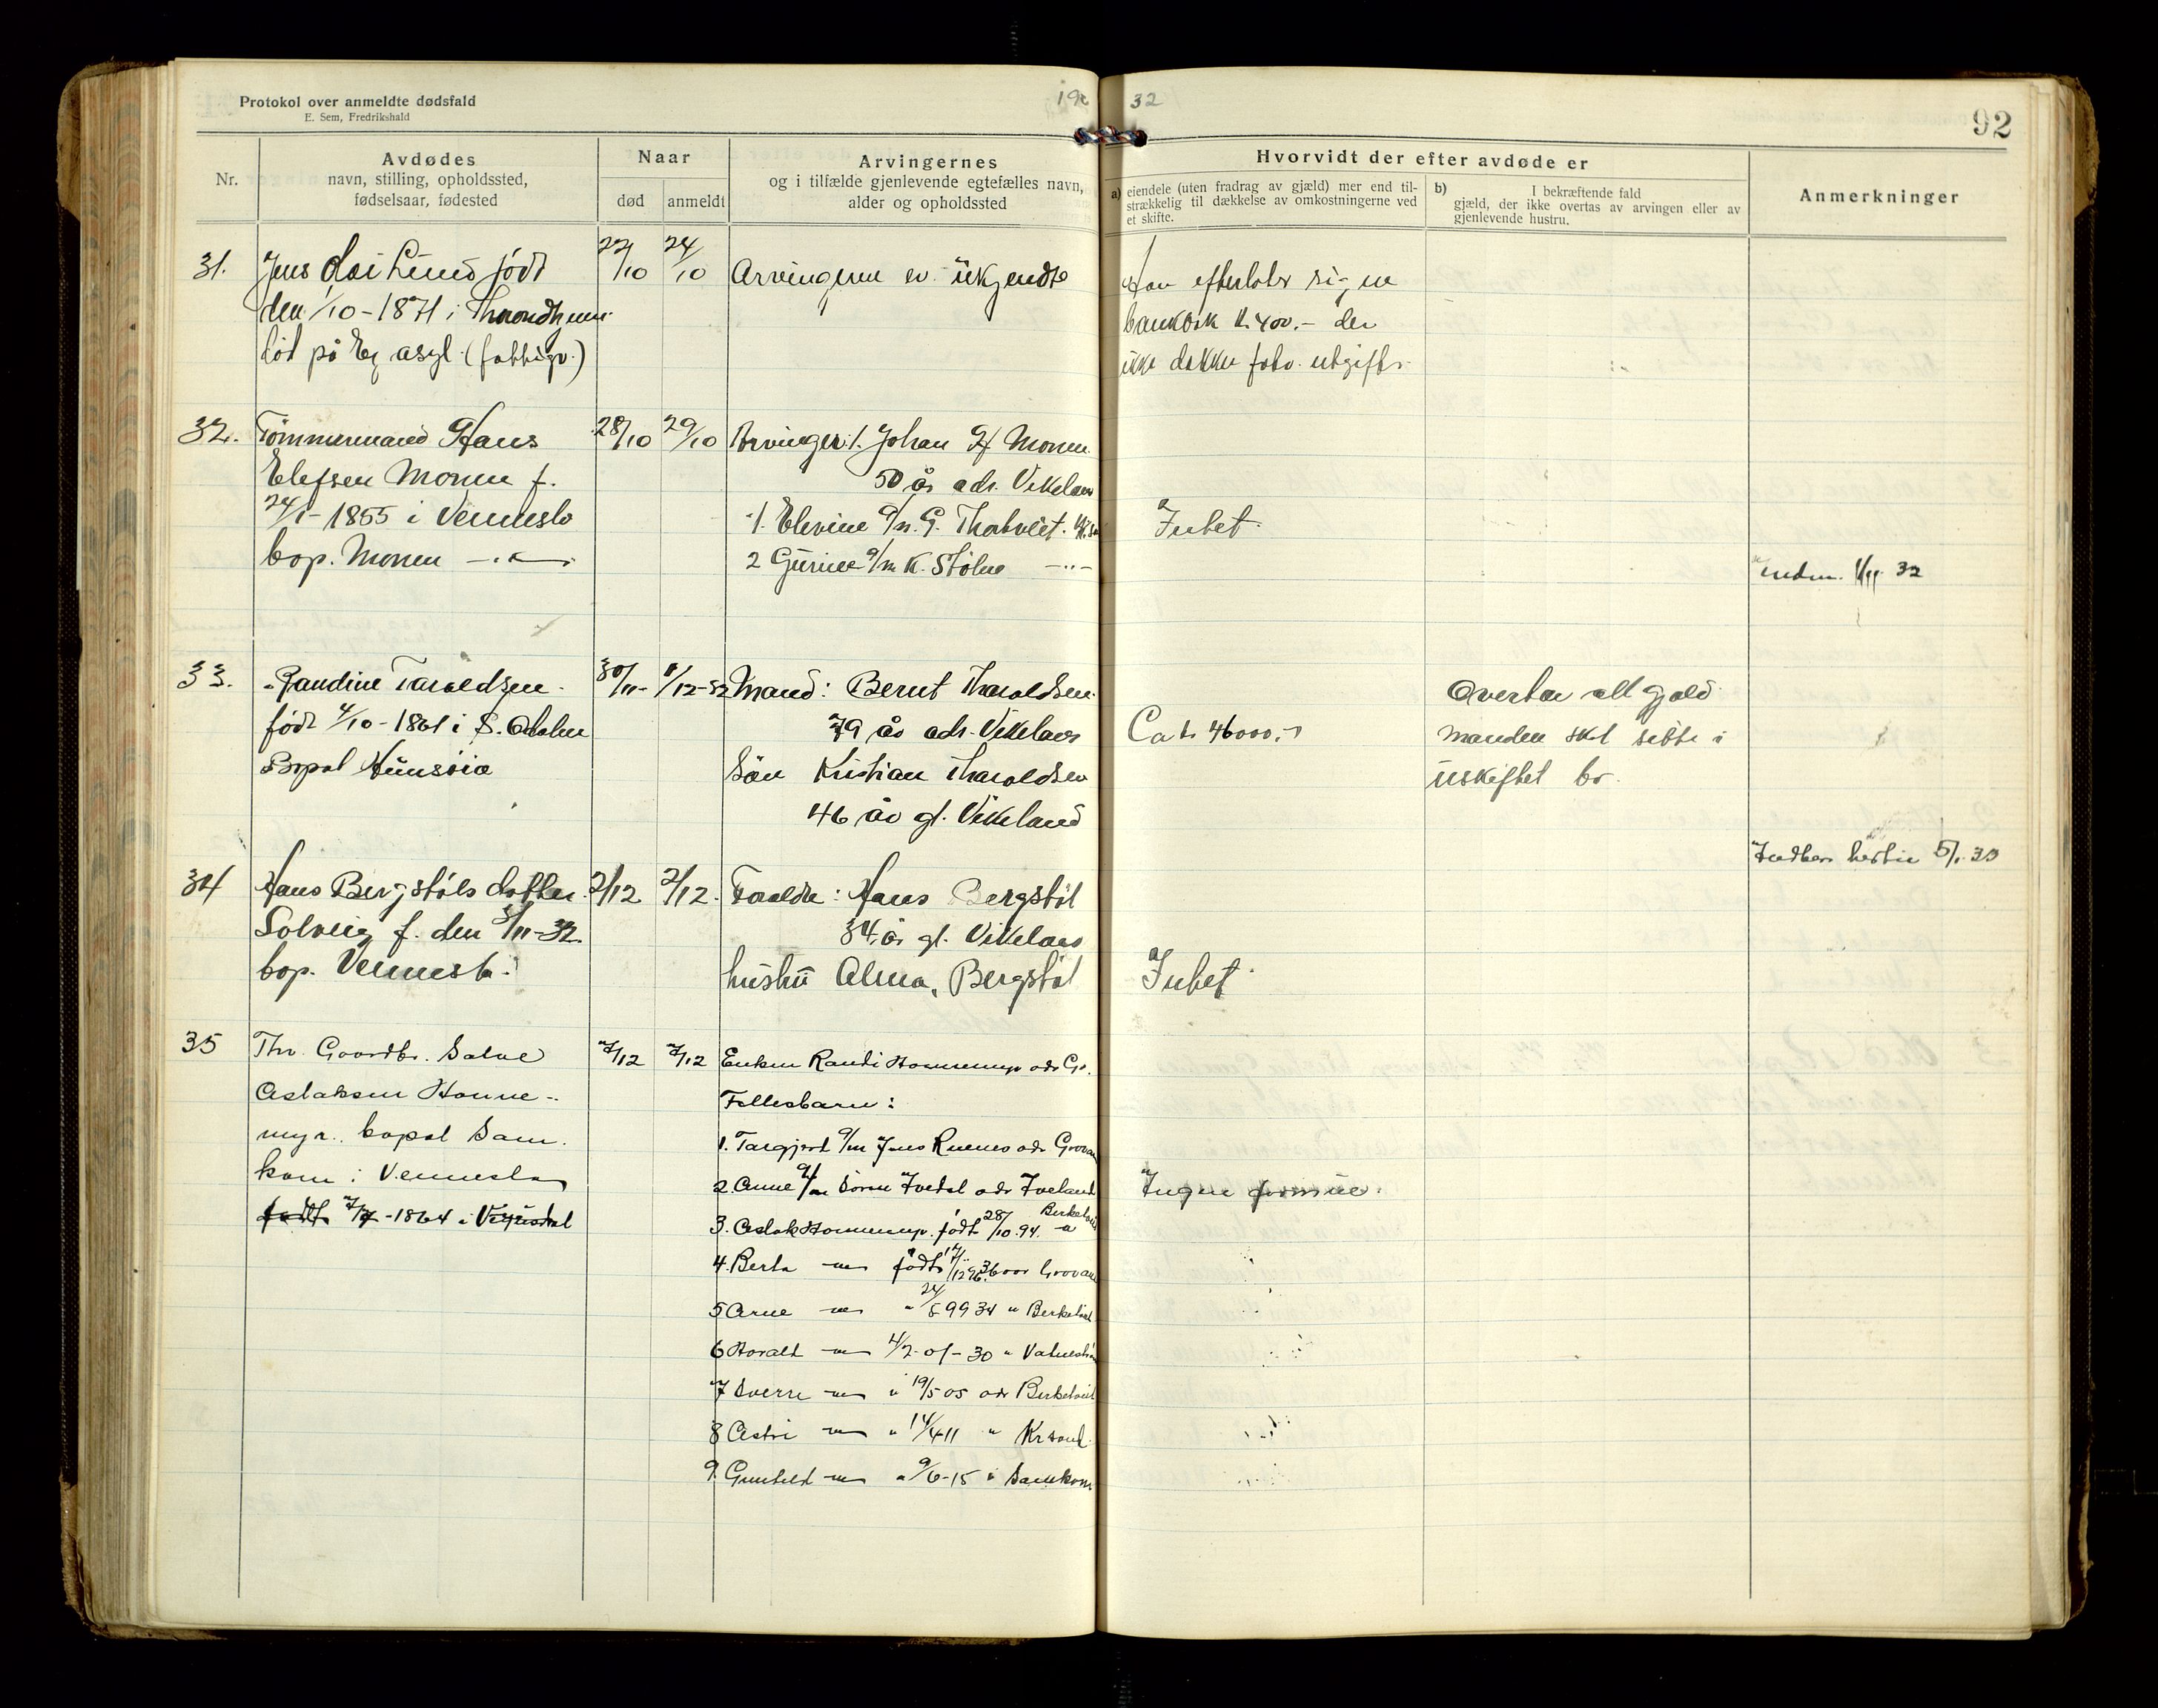 Protokol over anmeldte dødsfald
E. Sem, Fredrikshald
19
32
92
Nr.
Avdødes
navn, stilling, opholdssted,
fødselsaar, fødested
Naar
død
anmeldt
Arvingernes
og i tilfælde gjenlevende egtefælles navn,
alder og opholdssted
Hvorvidt der efter avdøde er
a) eiendele (uten fradrag av gjæld) mer end til-
strækkelig til dækkelse av omkostningerne ved
et skifte.
b) I bekræftende fald
gjæld, der ikke overtas av arvingen eller av
gjenlevende hustru.
Anmerkninger
31.
Jens Lund født
den 1/10-1871 i
død på Eg asyl (fattigv.)
22/10
24/10
Arvingerne er ukjendte
Han efterlater sig en
bankbok kr 400.- der
ikke dekker utgifter
32.
Tømmermand Hans
Elefsen Monen f.
24/1-1855 i Vennesla
bop. Monen -"-
28/10
29/10
Arvinger: 1. Johan H Monen
50 år adr. Vikeland
1. Elevine g/m. G.
2 Gurine g/m K. Stølne -"-
Intet.
32
33.
Randine Taraldsen
født 4/10-1861 i Ø.
Bopæl Hunsøia
30/11-
1/12-32
Mand: Bernt Tharaldsen
79 år adr. Vikeland
Søn Kristian Tharaldsen
46 år gl. Vikeland
Ca kr 46000,-
Overtar all gjæld
manden skal sitte i
uskiftet bo.
5/1-33
34
Hans Bergstøls datter
Solveig f. den 5/11-32
bop. Vennesla.
2/12
2/12.
Forældre: Hans Bergstøl
34 år gl. Vikeland
hustru Alma, Bergstøl
Intet
35
Fhv. Gaardbr. Salve
Aslaksen Homme-
myr. bopæl Sam.
kom i Vennesla
født 7/7-1864 i
7/12
7/12
Enken Randi Hommemyr adr
Fellesbarn:
1. Targjerd g/m Jens adr Grovan
2. Anne g/m Søren Ivedal adr Iveland
3. Aslak Hommemyr. født 28/10.94. Birketveit
4. Berta -"- født 17/12 96. 36 aar Grovane
5 Arne -"- " 24/8 99 34 " Birketveit
6 Harald -"- 4/2-01-30 "
7 Sverre -"- " 19/5 05 adr Birketveit
8 Astri -"- " 14/4 11 " Krsand.
9. Gunhild -"- " 9/6-15 " Samkom.
Ingen formue.